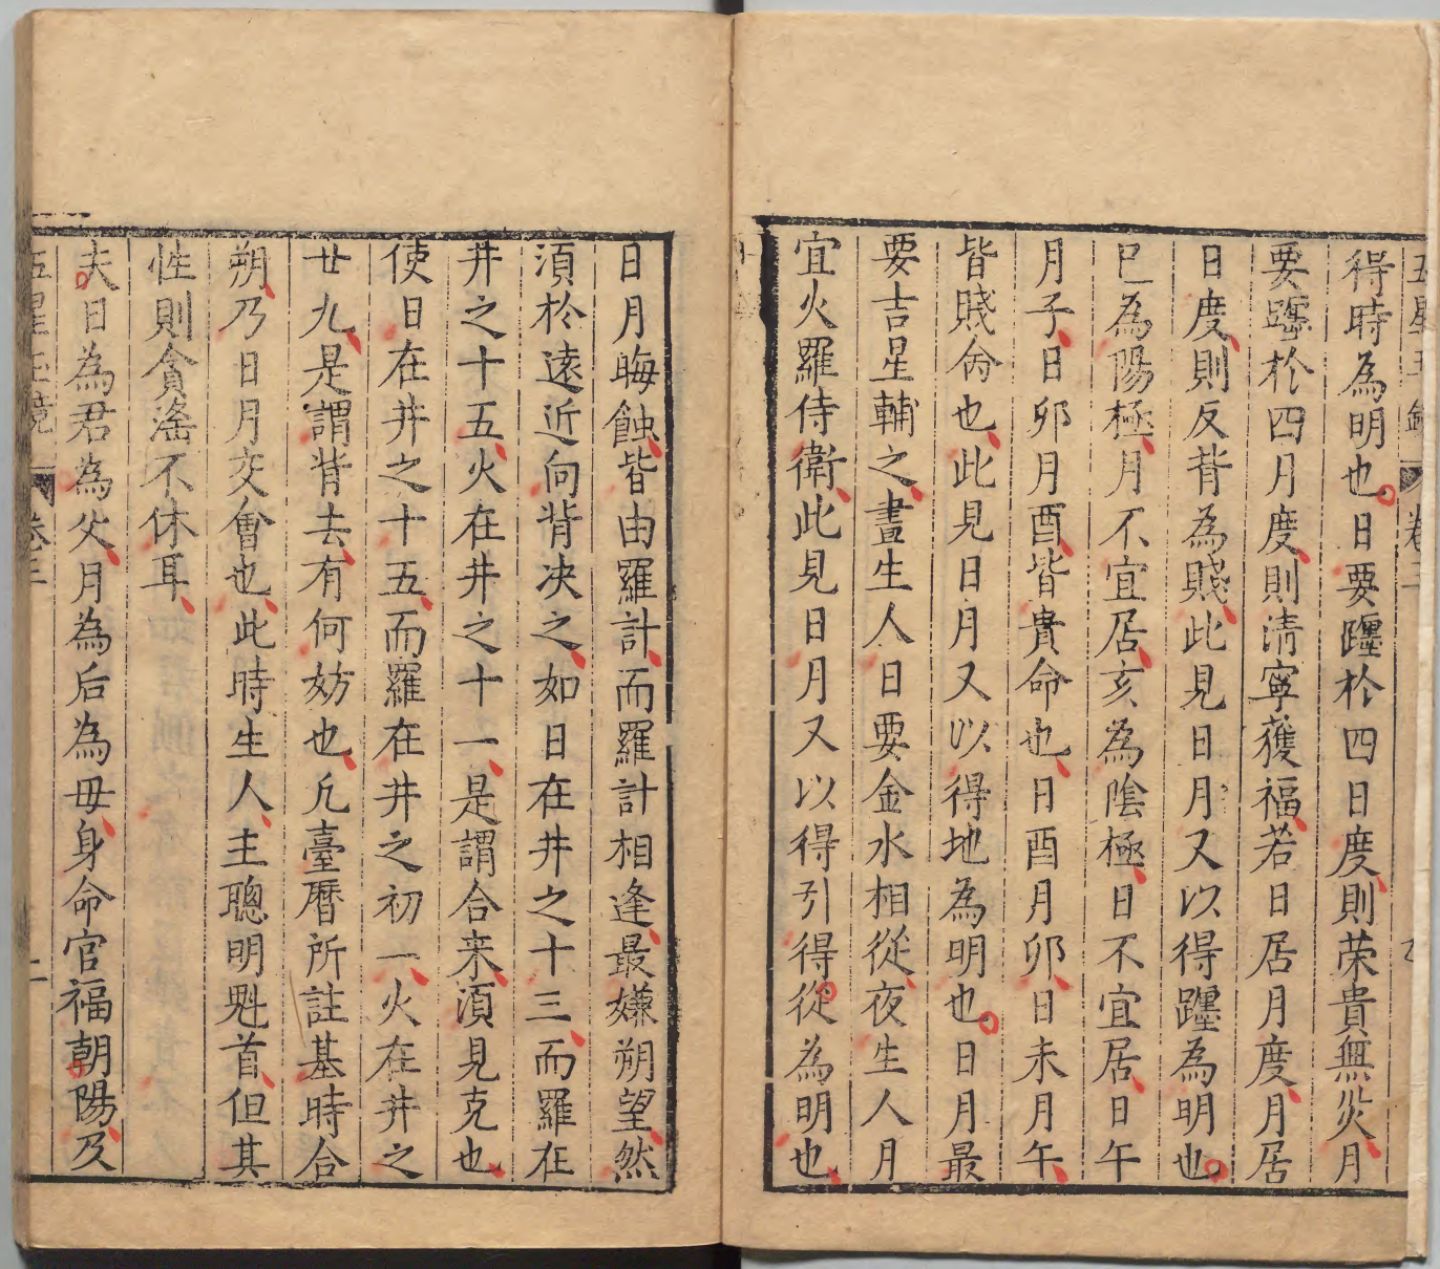 得時為明也日要躔於四日度則荣貴無災月
要躔於四月度則清寧獲福若日居月度月居
日度則反背為賤此見日月又以得躔為明也
巳為陽極月不宜居亥為陰極日不宜居日午
月子日卯月酉皆貴命也日酉月卯日未月午
皆賤命也此見日月又以得地為明也日月最
要吉星輔之晝生人日要金水相從夜生人月
宜火羅侍衛此見日月又以得引得從為明也
日月晦蝕皆由羅計而羅計相逢最嫌朔望然
須於遠近向背决之如日在井之十三而羅在
井之十五火在井之十一是謂合来須見克也
使日在井之十五而羅在井之初一火在井之
廿九是謂背去有何妨也凢臺曆所註基時合
朔乃日月交會也此時生人主聰明魁首但其
性則貪滛不休耳
夫日為君為父月為后為母身命官福朝陽及